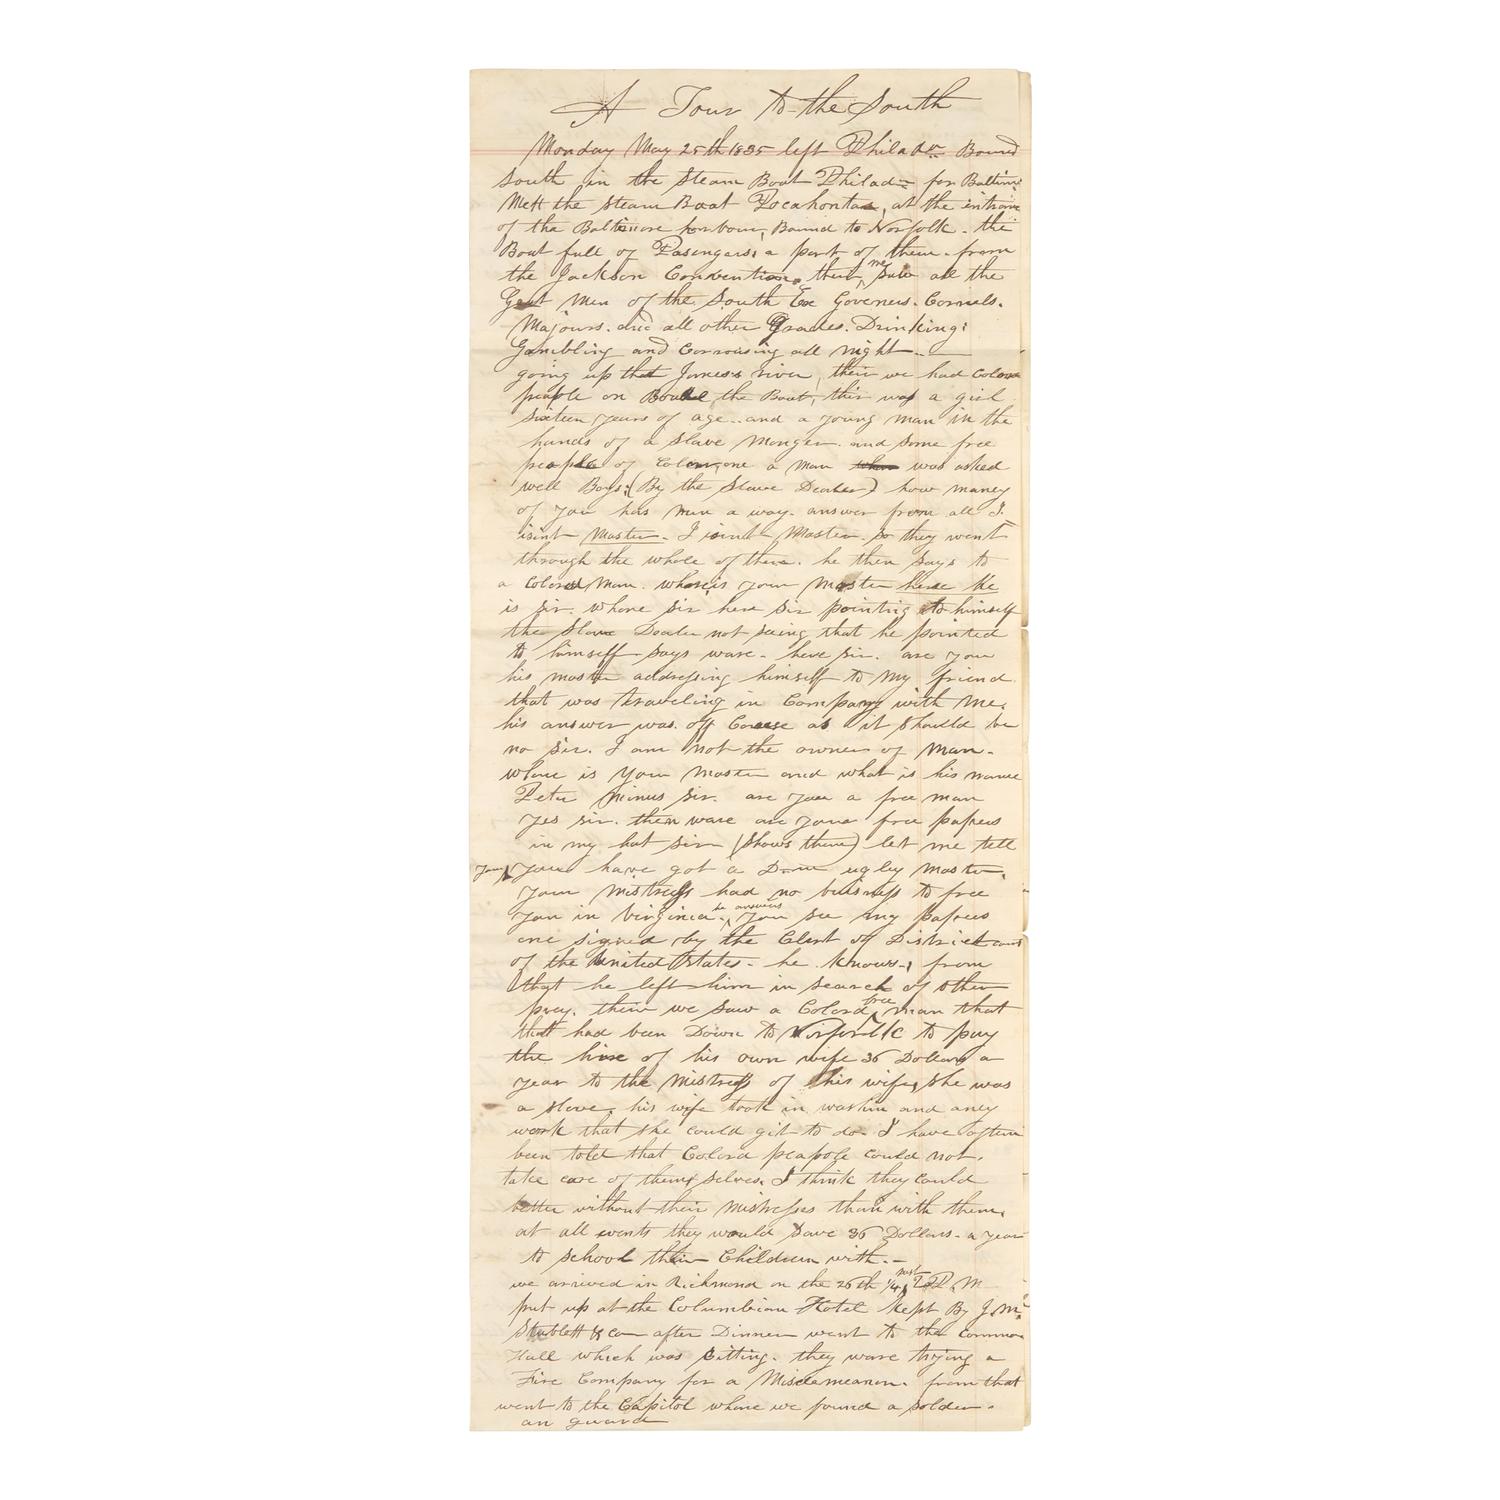 A Tour to the South
Monday May 25th 1835 left Philada Bound
South in the Steam Boat Philada for Baltim
Mett the steam Boat Pocahontas, at the
of the Baltimore harbour, Bound to Norfolk. the
Boat full of Pasengers, a part of them from
the Jackson Convention, their me saw all the
Great Men of the South Ex Governers. Cornels.
Majours. and all other Grades. Drinking;
Gambling and Corrousing all night.
going up the James's river, their we had Colord
people on the Boat, this was a girl
sixteen years of age and a young man in the
hands of a Slave Monger and some free
people of Colour, one a man was asked
well Boys; (By the Slave Dealer) how maney
of you has run a way. answer from all I
isint Master. I isint Master. so they went
through the whole of them. he then says to
a Colord Man. where, is your Master here He
is sir. where sir here sir pointing to himself
the Slave Dealer not seing that he pointed
to himself says ware. here sir. are you
his master addressing himself to my friend
that was traveling in Company with me.
his answer was. off Course as it should be
no sir. I am not the owner of Man.
whare is your Master and what is his name
Peter Minus sir. are you a free man
yes sir. then ware are your free papers
in my hat sir (shows them) let me tell
you, you have got a Dam ugley Master.
your mistress had no buisness to free
you in Virginia. he answers you see my papers
are signed by the Clerk of District court
of the United States. he knows, from
that he left him in search of other
prey. their we saw a Colord free man that
that had been Down to Norfolk to pay
the hire of his own wife 36 Dollars a
year to the Mistress of his wife, she was
a slave. his wife took in washin and aney
work that she could git to do. I have often
been told that Colord peapole could not
take care of them selves. I think they could
better without their mistresses than with them.
at all events they would save 36 Dollars a year
to school their Children with.
we arrived in Richmond on the 26th 1/4 past 2 P. M
put up at the Columbian Hotel kept By J. Mc
& co after Dinner went to the Common
Hall which was sitting. they ware trying a
Fire Company for a Misdemeanor. from that
went to the Capitol where we found a soldier.
on guard